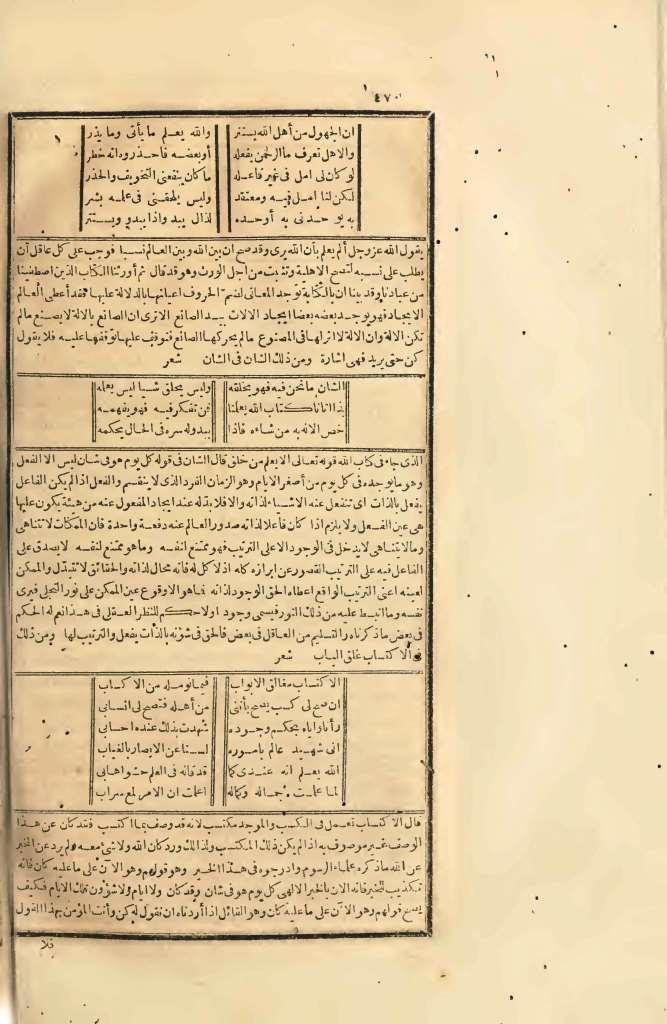 ٤٧٠
ان الجهول من أهل الله يستتر والله يعلم ما يأتى وما يذر
والاهل تعرف ما الرحمن يفعله أو بعضه فاحذروه انه خطر
لو كان لى امل فى غير فاعله ما كان ينفعنى التخويف والحذر
لكن لنا امل فيه ومعتقد وليس يلحقنى فى علمه بشر
به يوحدنى به أوحده لذاك يبدو اذا يبدو ويستتر
يقول الله عز وجل ألم يعلم بأن الله يرى وقد صح ان بين الله وبين العالم نسبا فوجب على كل عاقل أن
يطلب على نسبه لتصح الاهلية وتثبت من اجل الورث وهو قد قال ثم أورثنا الكتاب الذين اصطفينا
من عبادنا وقد بينا ان بالكتابة توجد المعانى لضم الحروف اعيانها بالدلالة عليها فقد أعطى العالم
الايجاد فهو يوجد بعضه بعضا ايجاد الالات بيد الصانع الاترى ان الصانع بالالة لا يصنع مالم
تكن الالة وان الالة لا اثر لها فى المصنوع مالم يحركها الصانع فتوقف عليها توقفها عليه فلا يقول
كن حتى يريد فهى اشارة ومن ذلك الشان فى الشان شعر
الشان ما نحن فيه فهو يخلقه وليس يخلق شيأ ليس يعلمه
بذا اتانا كتاب الله يعلمنا فمن تفكر فيه فهو يفهمه
خص الاله به من شاءه فاذا يبدوله سره فى الحال يحكمه
الذى جاء فى كتاب الله قوله تعالى الا يعلم من خلق قال الشان فى قوله كل يوم هو فى شان ليس الا الفعل
وهو ما يوجده فى كل يوم من أصغر الايام وهو الزمان الفرد الذى لا ينقسم والفعل اذا لم يكن الفاعل
يفعل بالذات اى تنفعل عنه الاشياء لذاته والا فلا بد له عند ايجاد المفعول عنه من هيئة يكون عليها
هى عين الفعل ولا يلزم اذا كان فاعلا لذاته صدور العالم عنه دفعة واحدة فان الممكنات لا تتناهى
وما لا يتناهى لا يدخل فى الوجود الا على الترتيب فهو ممتنع لنفسه وما هو ممتنع لنفسه لا يصدق على
الفاعل فيه على الترتيب القصور عن ابرازه كله اذ لا كل له فانه محال لذاته والحقائق لا تتبدل والممكن
لعينه اعنى الترتيب الواقع اعطاه الحق الوجود لذاته فما هو الا وقوع عين الممكن على نور التجلى فيرى
نفسه وما انبسط عليه من ذلك النور فيسمى وجود اولا حكم للنظر العقلى فى هذا نعم له الحكم
فى بعض ما ذكرناه والتسليم من العاقل فى بعض فالحق فى شؤنه بالذات يفعل والترتيب لها ومن ذلك
فى الاكتساب غلق الباب شعر
الاكتساب مغالق الابواب
ان صح لى كسب يصح بأننى من أهله فتصح لى انسابى
رأيا واياه يحكم وجوده شهدت بذلك عنده احبابى
انى شهيد عالم بأموره لسنا عن الابصار بالغياب
الله يعلم انه عندى كما قد قاله فى العلم حشو اهابى
لما علمت جماله وكماله اعلمت ان الامر لمع سراب
قال الاكتساب تعمل فى الكسب والموجد مكتسب لانه قد وصف بما اكتسب فقد كان عن هذا
الوصف غير موصوف به اذ لم يكن ذلك المكتسب ولذلك ورد كان الله ولا شئ معه ولم يرد عن المخبر
عن الله ما ذكره علماء الرسوم وادرجوه فى هذا الخبر وهو قولهم وهو الآن على ما عليه كان فانه
تكذيب للخبر فانه الان بالخبر الالهى كل يوم هو فى شان وقد كان ولا ايام ولا شؤون تلك الايام فكيف
يصح قولهم وهو الآن على ما عليه كان وهو القائل اذا أردناه ان نقول له كن وأنت المؤمن بهذا القول
فلا